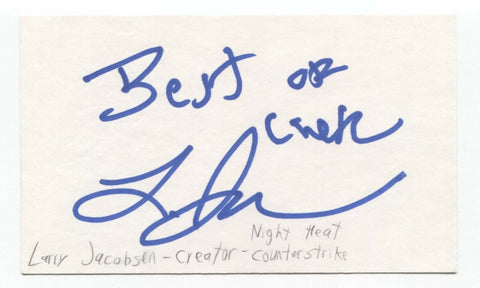 Best of
Luck
L J
Night Heat
Larry Jacobsen - creator - counterstrike